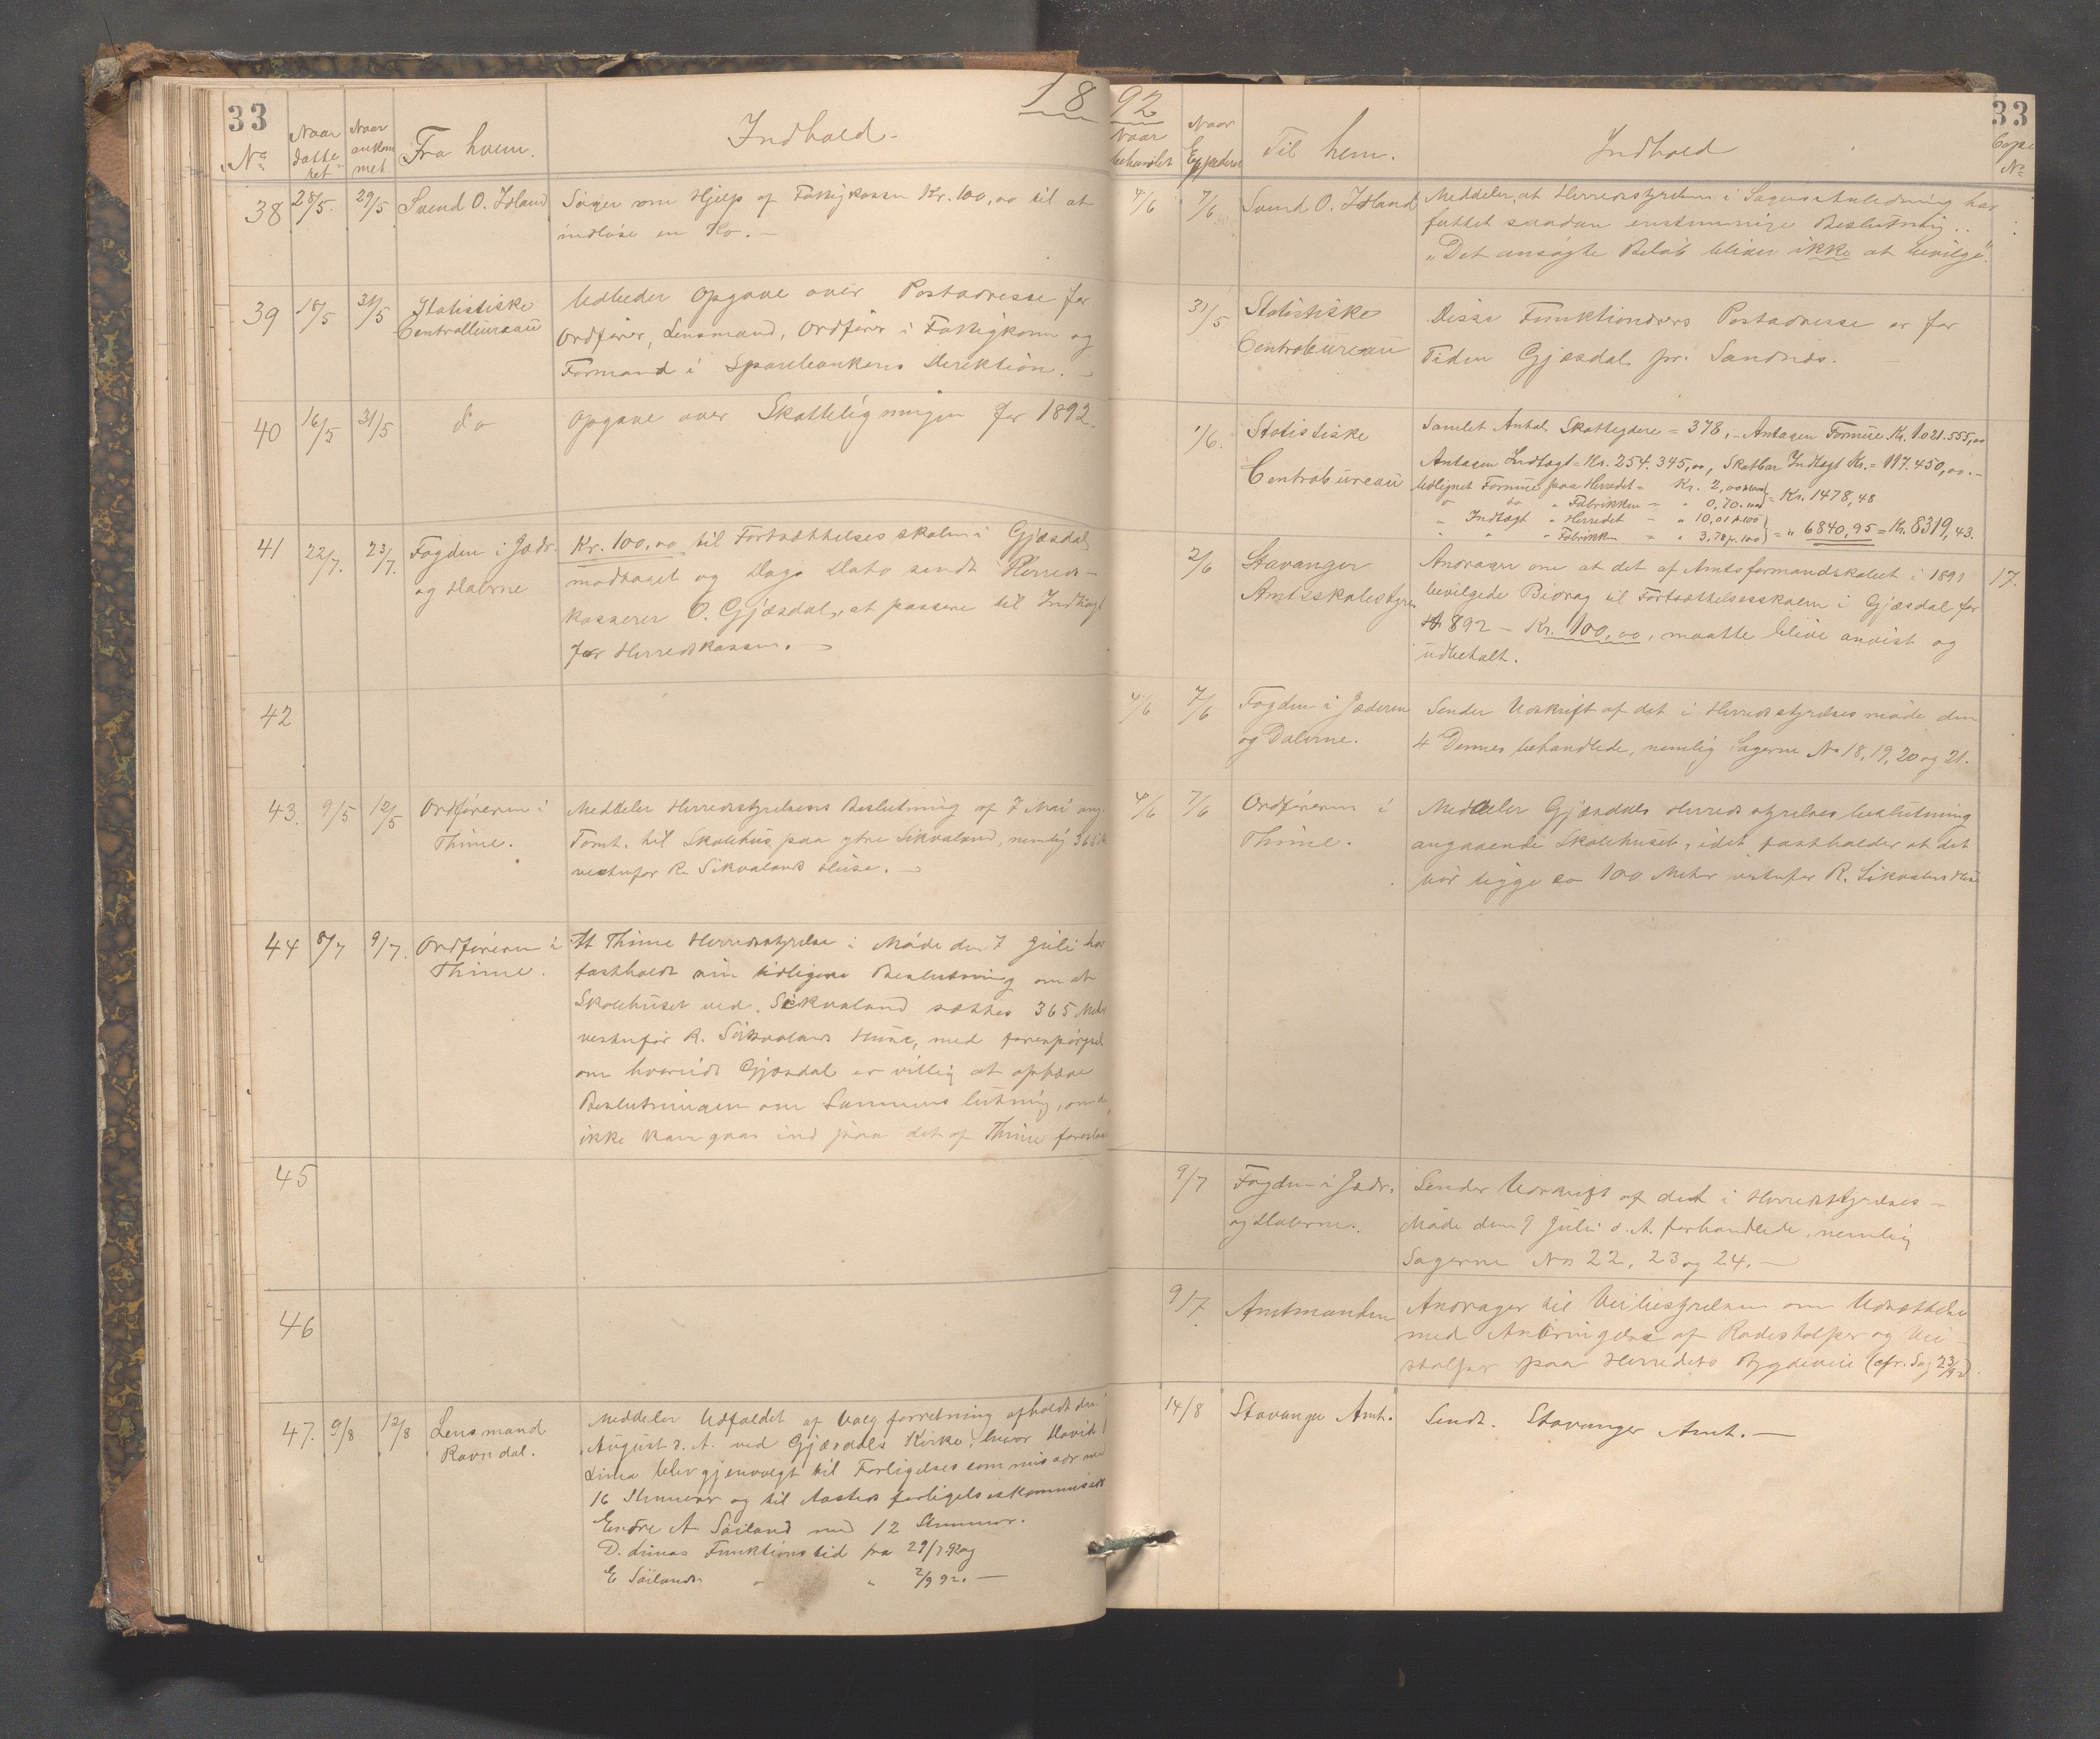 1892
33
No
Naar
datte
ret
Naar
ankom
met
Fra hvem.
Indhold
38
28/5.
29/5
Svend O. Idland
Söger om Hjelp af Fattigkassen Kr. 100,00 til at
indlöse en Ko. –
39
18/5
31/5
Statistiske
Centralbureau
Udbeder Opgave over Postadresse for
Ordförer, Lensmand, Ordförer i Fattigkomm og
Formand i Sparebankens Direktion. –
40
16/5
31/5
do
Opgave over Skatteligningen for 1892.
41
22/7.
23/7.
Fogden i Jædr.
og Dalerne
Kr. 100,00 til Fortsættelsesskolen i Gjæsdal
modtaget og Dags Dato sendt Herreds-
kasserer O. Gjæsdal, at passere til Indtægt
for Herredskassen. –
42
43.
9/5
12/5
Ordföreren i
Thime.
Meddeler Herredsstyrelsens Beslutning af 7 Mai ang.
Tomt. til Skolehus paa ytre Sikvaland, nemlig 365
vestenfor R. Sikvalands Huse. –
44
8/7
9/7.
Ordföreren i
Thime.
At Thime Herredsstyrelse i Möde den 7 Juli har
fastholdt sin tidligere Beslutning om at
Skolehuset ved Sikvaland sættes 365 Meter
vestenfor R. Sikvalands Huse, med forespörgsel
om hvorvidt Gjæsdal er villig at ophæve
Beslutningen om Sammenslutning, om
ikke kan gaaes ind paa det af Thime
45
46
47.
9/8
12/8
Lensmand
Ravndal.
Meddeler Udfaldet af Valgforretning afholdt den
August d. A. ved Gjæsdals Kirke, hvor David
Lima blev gjenvalgt til Forligelseskommissær med
16 Stemmer og til Aasteds forligelseskommissær
Endre A Søiland med 12 Stemmer.
D. Limas Funktionstid fra 29/7.92 og
E Søilands " " 2/9 92. –
Naar
behandlet
Naar
Expederet
Til hem.
Indhold
33
Copi
No
4/6
7/6
Svend O. Idland
Meddeler, at Herredsstyrelsen i Sagens Anledning har
fattet saadan enstemmige Beslutning:
„Det ansögte Belöb bliver ikke at bevilge".
31/5
Statistiske
Centrabureau
Disse Funktionærers Postadresse er for
Tiden Gjæsdal pr. Sandnæs.
1/6.
Statistiske
Centrabureau
Samlet Antal Skatteydere = 378, – Antagen Formue Kr. 1.021.555,00
Antagen Indtægt = Kr. 254.345,00, Skatbar Indtægt Kr. = 117.450,00. –
Udlignet Formue paa Herredet = Kr. 2,00
" do " Fabrikken – " 0,70 = Kr. 1478,48
" Indtægt " Herredet – " 10,01 p. 100
" " " Fabrikken – " 3,78 p. 100 = " 6840,95 = Kr. 8319,43.
2/6
Stavanger
Amtsskolestyre
Andrager om at det af Amtsformandskabet i 1891
bevilgede Bidrag til Fortsættelsesskolen i Gjæsdal for
1892 – Kr. 100,00, maatte blive anvist og
udbetalt.
17.
4/6
7/6
Fogden i Jæderen
og Dalerne.
Sender Udskrift af det i Herredsstyrelsesmöde den
4 Dennes behandlede, nemlig Sagerne No 18, 19, 20 og 21.
4/6
7/6
Ordföreren i
Thime.
Meddeler Gjæsdals Herredsstyrelses beslutning
angaaende Skolehuset, idet fastholder at det
bör ligge ca 100 Meter vestenfor R. Sikvalands Huse
9/7
Fogden i Jædr.
og Dalerne.
Sender Udskrift af det i Herredsstyrelses –
Möde den 9 Juli d. A. forhandlede, nemlig
Sagerne No 22, 23 og 24. –
9/7.
Amtmanden
Andrager til Veibestyrelsen om Udsættelse
med Anbringelse af Rodestolper og Vei-
stolper paa Herredets Bygdeveie (cfr. Sag 23/92).
14/8
Stavanger Amt.
Sendt. Stavanger Amt. –